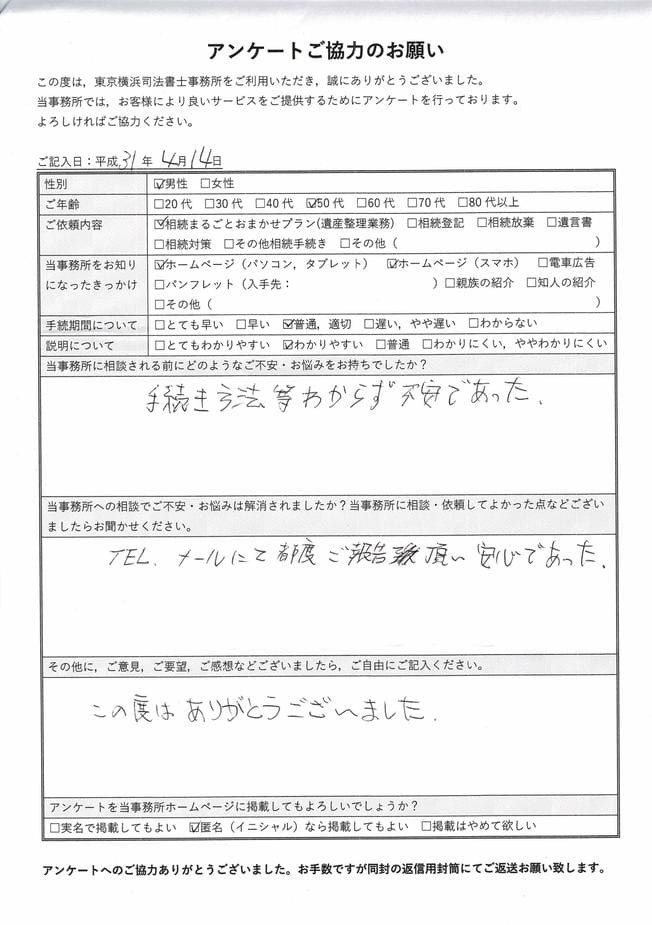 アンケートご協力のお願い
この度は，東京横浜司法書士事務所をご利用いただき，誠にありがとうございました。
当事務所では，お客様により良いサービスをご提供するためにアンケートを行っております。
よろしければご協力ください。
ご記入日：平成 31 年 4月 14日
性別 ☑男性 □女性
ご年齢 □20代 □30代 □40代 ☑50代 □60代 □70代 □80代以上
ご依頼内容 ☑相続まるごとおまかせプラン(遺産整理業務) □相続登記 □相続放棄 □遺言書
□相続対策 □その他相続手続き □その他（ ）
当事務所をお知り ☑ホームページ（パソコン，タブレット） ☑ホームページ（スマホ） □電車広告
になったきっかけ □パンフレット（入手先： ）□親族の紹介 □知人の紹介
□その他（ ）
手続期間について □とても早い □早い ☑普通，適切 □遅い，やや遅い □わからない
説明について □とてもわかりやすい ☑わかりやすい □普通 □わかりにくい，ややわかりにくい
当事務所に相談される前にどのようなご不安・お悩みをお持ちでしたか？
手続き方法等わからず不安であった.
当事務所への相談でご不安・お悩みは解消されましたか？当事務所に相談・依頼してよかった点などござい
ましたらお聞かせください。
TEL. メールにて都度ご報告頂い安心であった.
その他に，ご意見，ご要望，ご感想などございましたら，ご自由にご記入ください。
この度はありがとうございました.
アンケートを当事務所ホームページに掲載してもよろしいでしょうか？
□実名で掲載してもよい ☑匿名（イニシャル）なら掲載してもよい □掲載はやめて欲しい
アンケートへのご協力ありがとうございました。お手数ですが同封の返信用封筒にてご返送お願い致します。